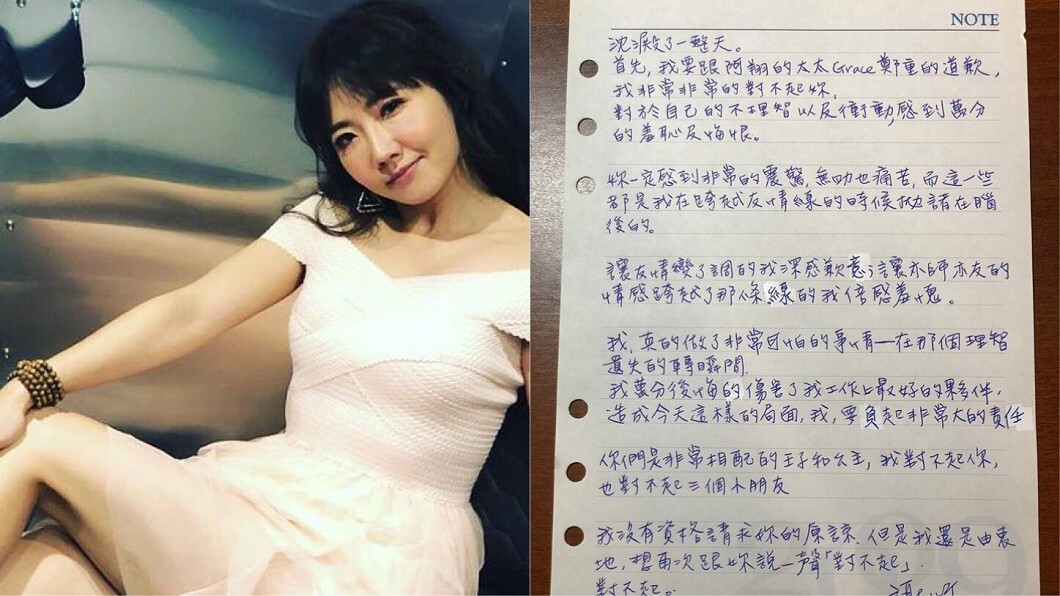 NOTE
沈澱了一整天。
首先，我要跟阿翔的太太Grace鄭重的道歉，
我非常非常的對不起妳，
對於自己的不理智以及衝動，感到萬分
的羞恥及悔恨。
妳一定感到非常的震驚，無助也痛苦，而這一些
都是我在跨越友情線的時候拋諸在腦
後的。
讓友情變了調的我深感歉意；讓亦師亦友的
情感跨越了那條線的我倍感羞愧。
我，真的做了非常可怕的事情—在那個理智
遺失的瞬間．
我萬分後悔的傷害了我工作上最好的夥伴，
造成今天這樣的局面，我，要負起非常大的責任
你們是非常相配的王子和公主，我對不起你，
也對不起三個小朋友
我沒有資格請求妳的原諒．但是我還是由衷
地，想再次跟妳說一聲「對不起」．
對不起。